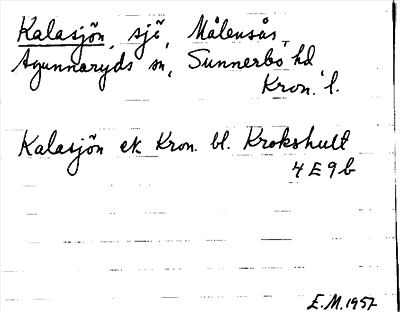 Kalasjön, sjö, Målensås,
Agunnaryds sn, Sunnerbo hd,
Kron. l.
Kalasjön ek. Kron. bl. Krokshult
4 E 9 b
E.M. 1957